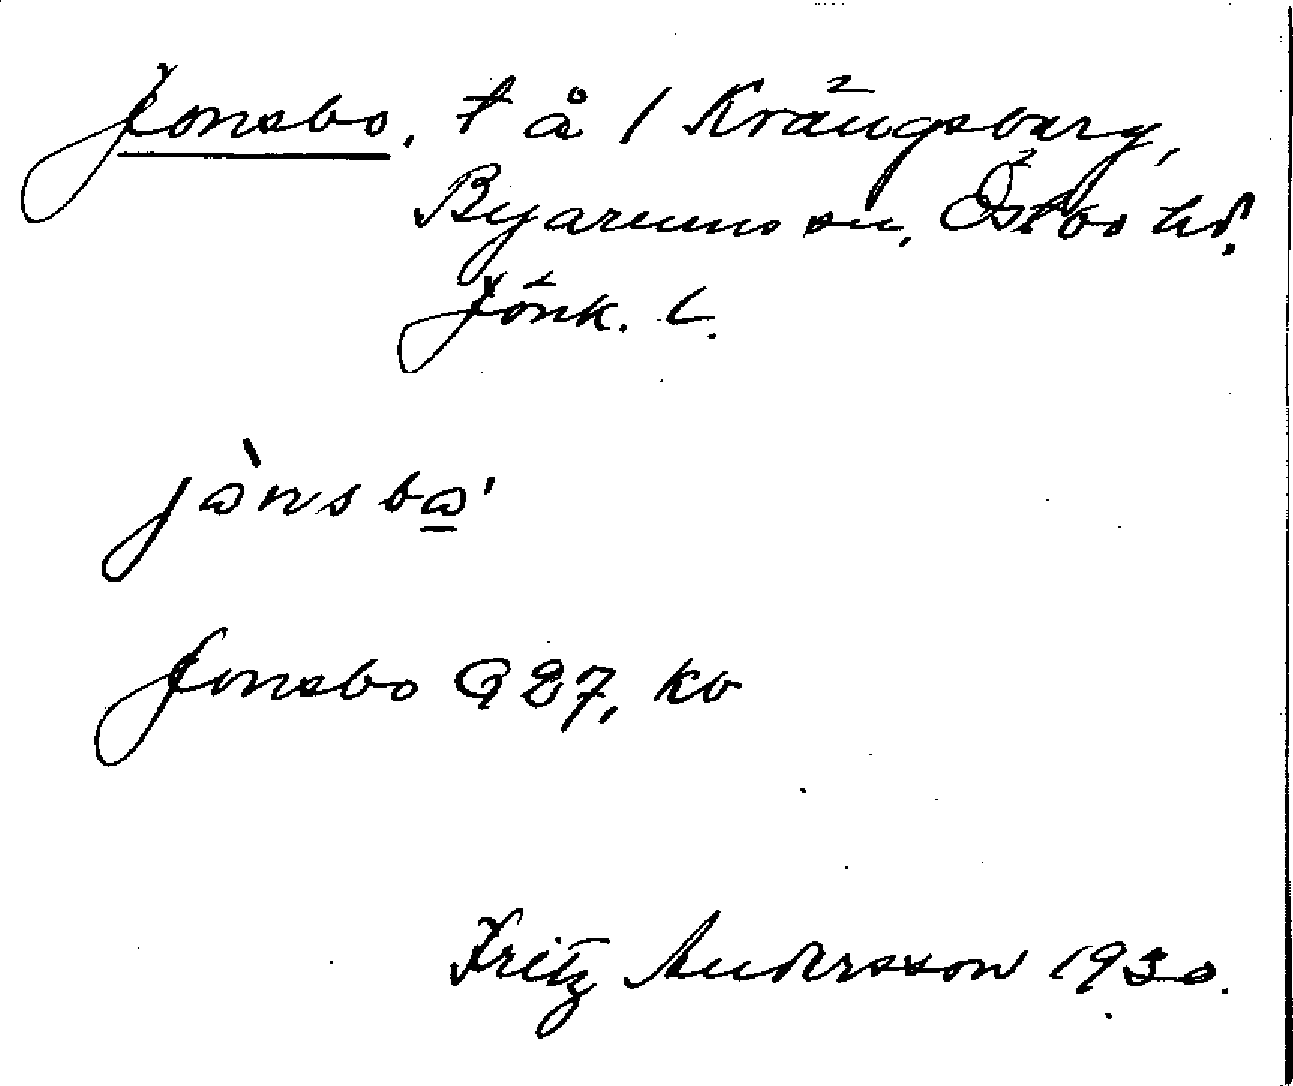 Jonsbo, t å 1 Krängsberg,
Byarums sn, Östbo hd.
Jönk. L.
jònsbo'
Jonsbo G 27, kv
Fritz Andersson 1930.